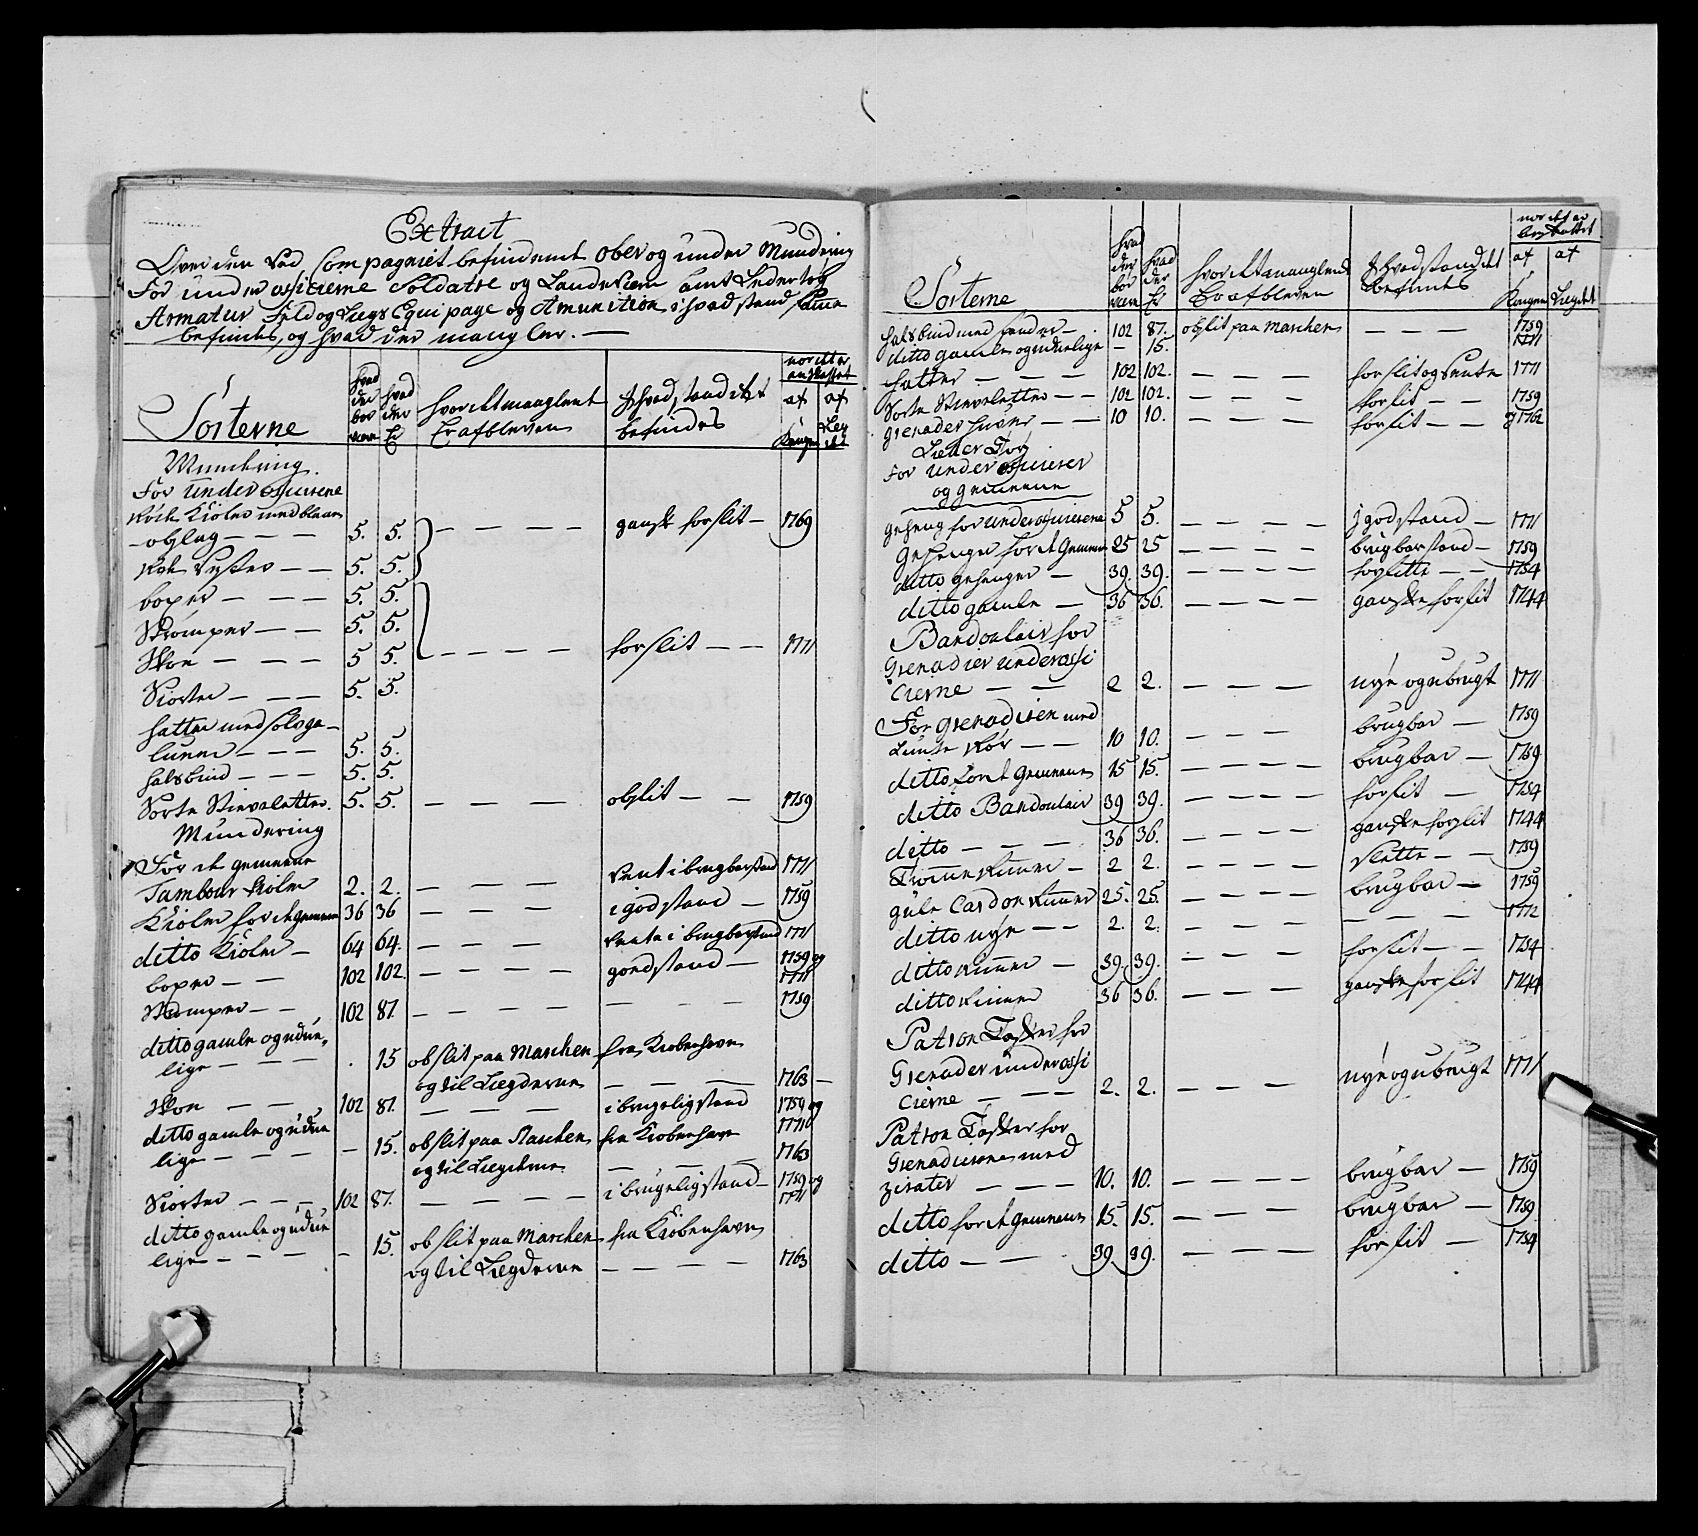 Extract
Over den ved Compagniet befindende ober og under Mundering
For under officierne Soldater og Landeværn samt Ledertøy
Armatur Feld og Liigs Equipage og Amunition i hvad stand samme
befindes, og hvad der mangler. —
Sorterne | hvad der bør være | hvad der Er | hvor det manglende Er afbleven | I hvad stand det befindes | naar det er anskaffet af Kongen | af Legdet
Mundering.
For under officerene
Røde Kioler med blaae
opslag — — — 5. 5. — — — — gansk forslit — 1769
Røde Vester — — 5. 5.
boxer — — — 5. 5.
Strømper — — 5. 5.
Skoe — — — 5 5. — — — — forslit — — 1771
Skiorter — — — 5. 5.
hatter med sølvga-
luner — — — 5. 5.
halsbind — — — 5. 5.
Sorte Stieveletter. 5. 5. — — — obslit — — 1759
Mundering
For de gemeene
Tambour Kioler 2. 2. — — — vent i brugbarstand 1771
Kioler for de gemeene 36 36 — — — i god stand — 1759
ditto Kioler — 64 64. — — — vente i brugbarstand 1771
boxer — — 102 102. — — — — goedstand — 1759 og 1771
Strømper — — 102 87. — — — — — — — 1759
ditto gamle og udue-
lige — — — . 15 obslit paa Marschen fra Kiøbenhavn
og til Lægderne — — — 1763 —
Skoe — — 102 87. — — — i brugelig stand 1759 og 1771
ditto gamle og udue
lige — — — — 15. obslit paa Marschen fra Kiøbenhavn
og til Lægderne — — — 1763
Skiorter — — — 102 87. — — — — i brugelig stand — 1759 og 1771
ditto gamle og udue
lige — — — — 15. obslit paa Marschen fra Kiøbenhavn
og til Lægderne — — — — 1763
Sorterne | hvad der bør være | hvad der Er | hvor det manglende Er afbleven | I hvad stand det befindes | naar det er anskaffet af Kongen | af Lægdet
halsbind med spender — . 102 87. obslit paa Marschen — — — 1759
ditto gamle og uduelige — 15. 1771
hatter — — — 102 102. — — — forslit og vente 1771
Sorte Stieveletter — — 102 102. — — — forslit — — 1759
grenader huer — — 10 10. — — — forslit — — 1762
Læder Tøy
For under officerer
og gemeene
geheng for underofficererne 5 5. — — — — I god stand — 1771
Gehenger for de Gemeene 25 25 — — — — brugbar stand — 1759
ditto gehenger — 39. 39. — — — — forslitte — — 1754
ditto gamle — 36 36. — — — — ganske forslit 1744
Bandoulair for
Grenadier underoffi
cierne — — 2 2. — — — — nye og ubrugt 1771
For grenadieren med
Lunte Rør — — 10 10. — — — brugbar — 1759
ditto for de Gemeene 15 15. — — — — brugbar — 1759
ditto Bandoulair 39 39. — — — — forslit — 1754
ditto — — — 36 36. — — — — ganske forslit 1744
Tromme Remmer — 2 2. — — — — slette — — 1759
gule Cardon Remmer 25. 25. — — — — brugbar — 1759
ditto nye — — 2. 2. — — — — — — 1772
ditto Remmer — 39. 39. — — — — forslit — — 1754
ditto Remmer 36 36. — — — — ganske forslit 1744
Patron Tasker for
Grenader underoffi
cierne — — — 2. 2. — — — — nye og ubrugt 1771
Patron Tasker for
Grenadiererne med
zirater — — — 10. 10. — — — — brugbar — 1759
ditto for de Gemeene 15. 15. — — — — brugbar — 1759
ditto — — 39. 39. — — — — forslit — 1754